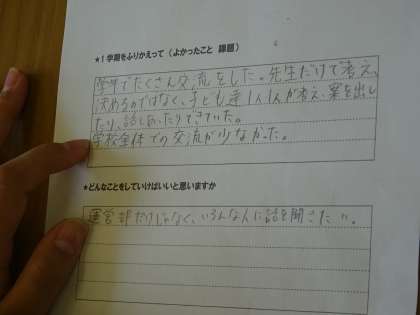 ★1学期をふりかえって（よかったこと 課題）
学年でたくさん交流をした。先生だけで考え、
決めるのではなく、子ども達1人1人が考え、案を出し
たり、話しあったりできていた。
学校全体での交流が少なかった。
★どんなことをしていけばいいと思いますか
運営部だけじゃなく、いろんな人に話を聞きたい。